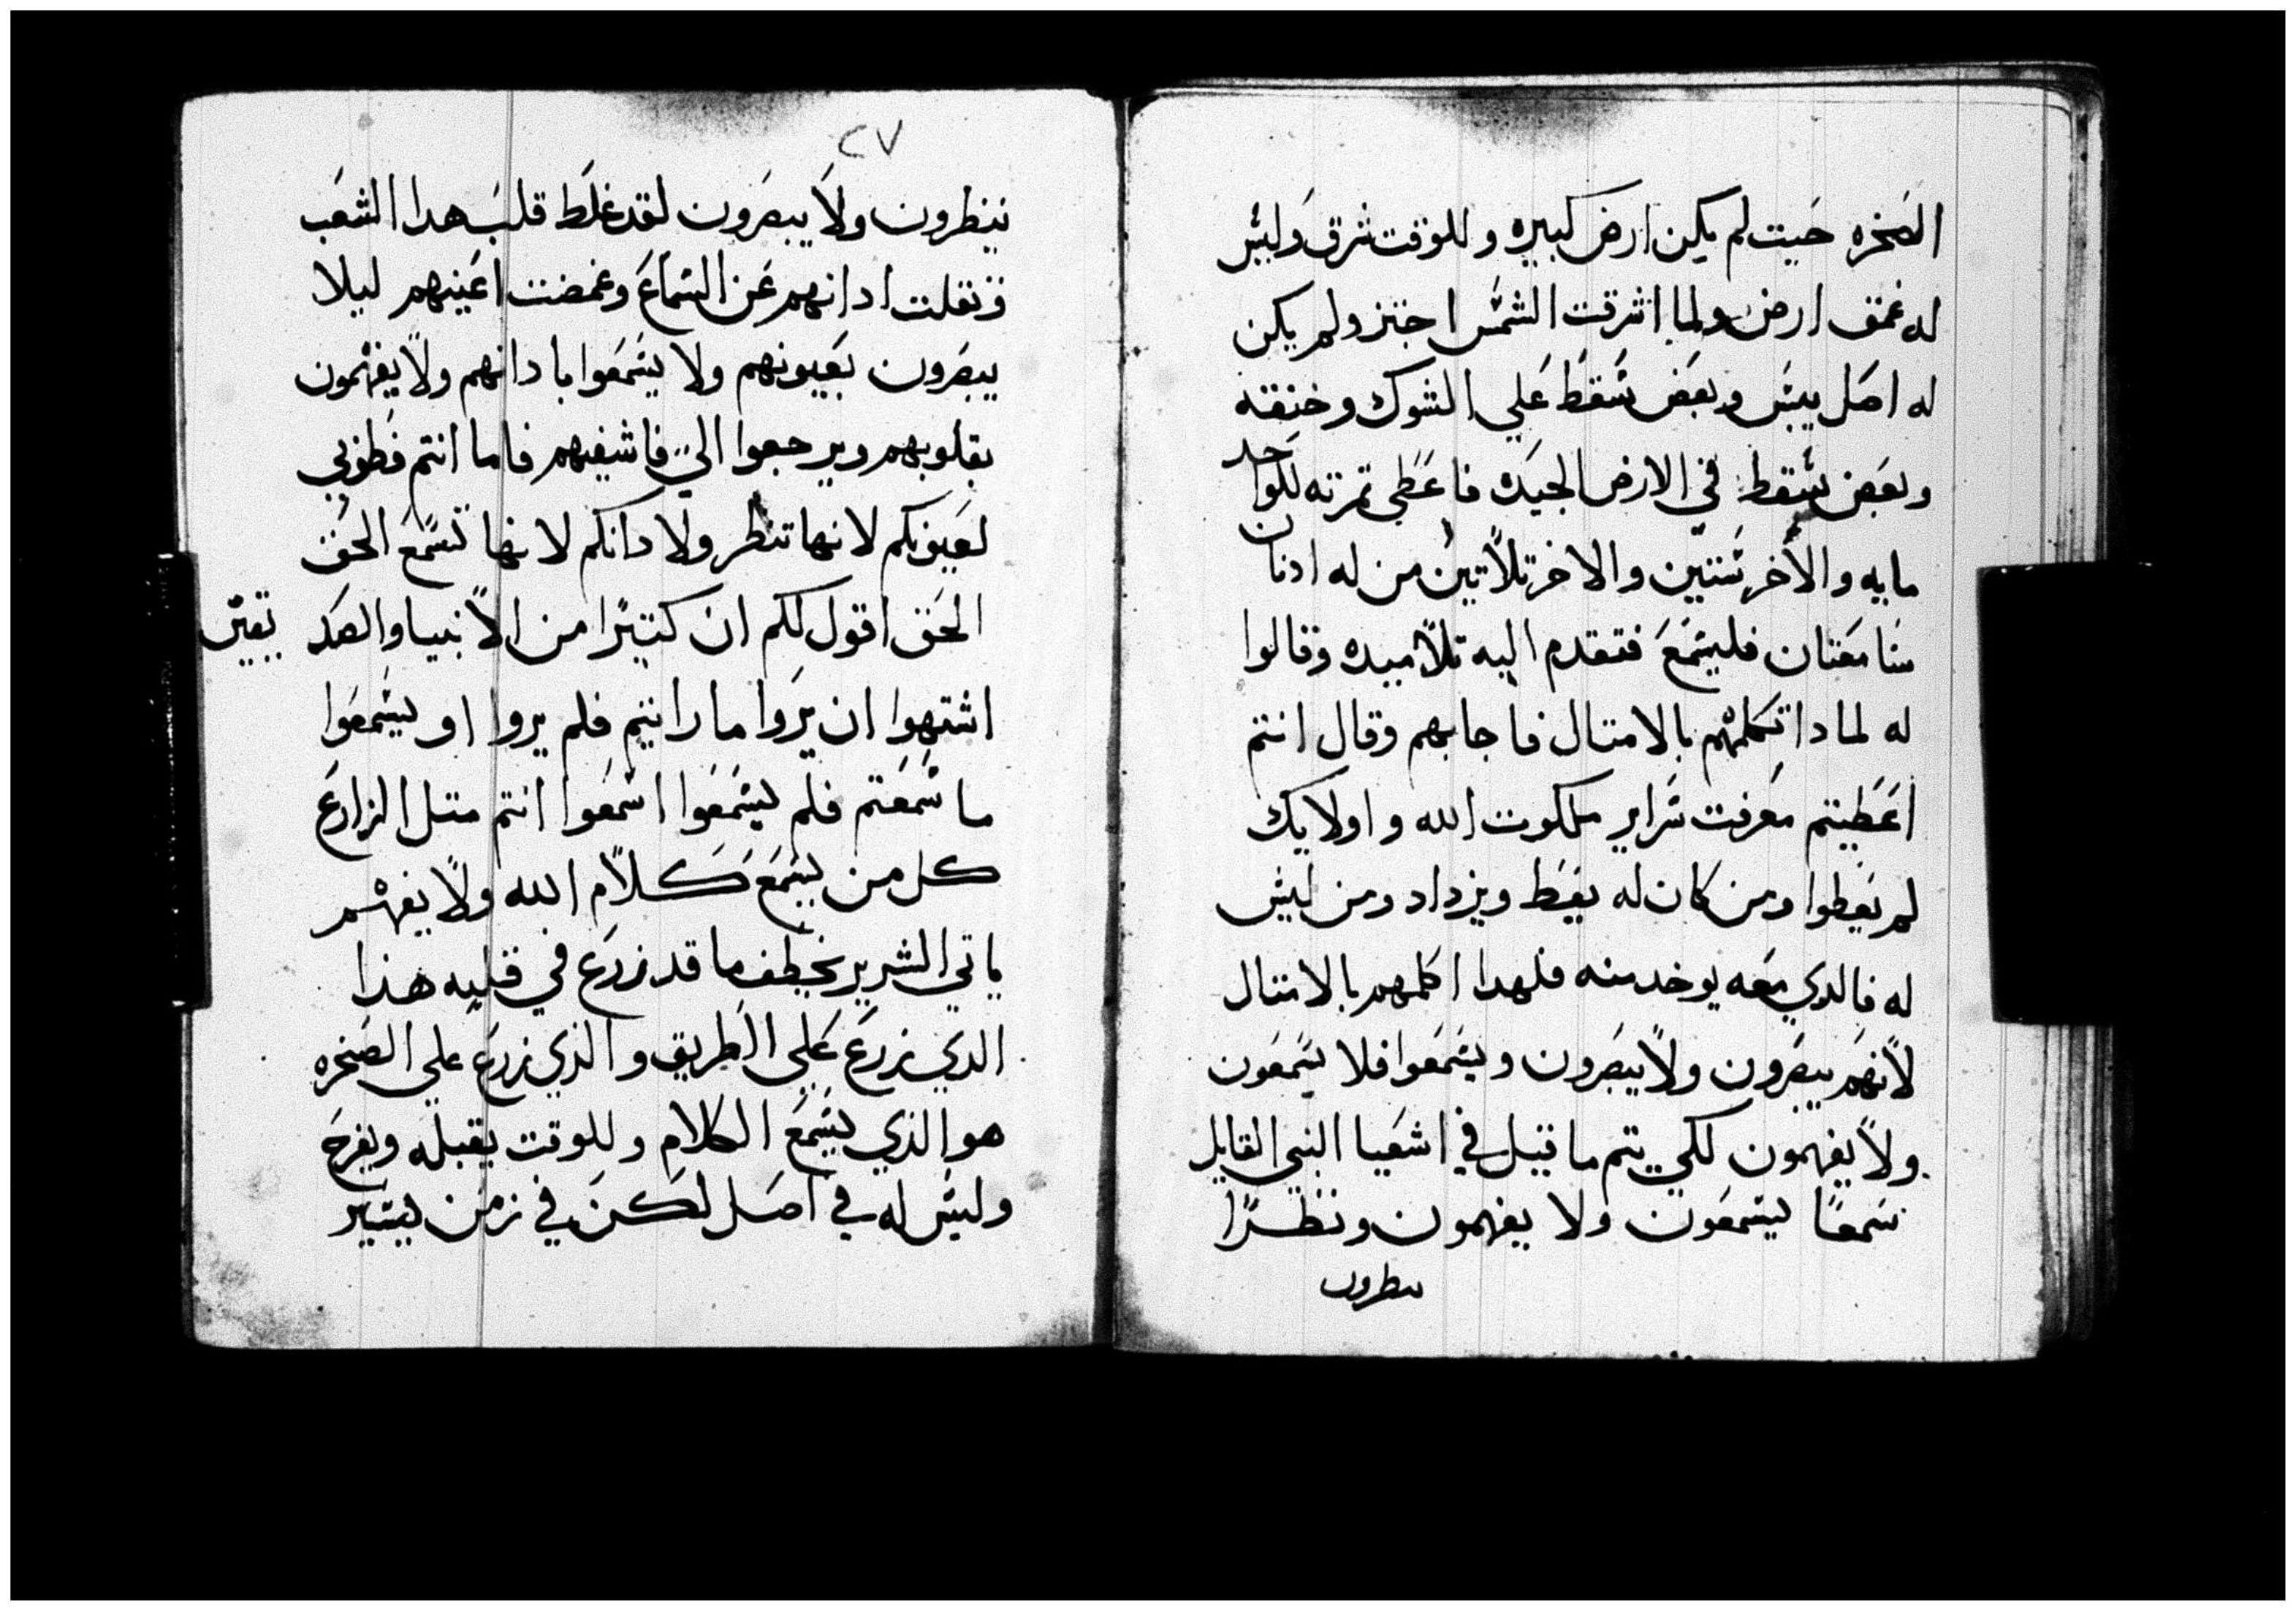 الصخره حيت لم يكن ارض كبيره وللوقت شرق وليس
له عمق ارض ولما اشرقت الشمس احتز ولم يكن
له اصل يبس وبعض سقط علي الشوك وخنقه
وبعض سقط في الارض الجيده فاعطي تمرته للواحد
مايه والاخر ستين والاخر تلاتين من له ادنان
سامعتان فليسمع فتقدم اليه تلاميده وقالوا
له لمادا تكلمهم بالامتال فاجابهم وقال انتم
اعطيتم معرفت سراير ملكوت الله واولايك
لم يعطوا ومن كان له يعط ويزداد ومن ليس
له فالدي معه يوخد منه فلهدا اكلمهم بالامتال
لانهم يبصرون ولا يبصرون ويسمعوا فلا يسمعون
ولا يفهمون لكي يتم ما قيل في اشعيا النبي القايل
سمعا يسمعون ولا يفهمون ونظرا
ينظرون
٢٧
ينظرون ولا يبصرون لقد غلط قلب هدا الشعب
وتقلت ادانهم عن السماع وغمضت اعينهم ليلا
يبصرون بعيونهم ولا يسمعوا بادانهم ولا يفهمون
بقلوبهم ويرجعوا الي فاشفيهم فاما انتم فطوبي
لعيونكم لانها تنظر ولادانكم لانها تسمع الحق
الحق اقول لكم ان كتيرا من الانبيا والصديقين
اشتهوا ان يروا ما رايتم فلم يروا او يسمعوا
ما سمعتم فلم يسمعوا اسمعوا انتم متل الزارع
كل من يسمع كلام الله ولا يفهم
ياتي الشرير يخطف ما قد زرع في قلبه هذا
الدي زرع علي الطريق والذي زرع علي الصخره
هو الذي يسمع الكلام وللوقت يقبله ويفرح
وليس له في اصل لكن في زمن يسير